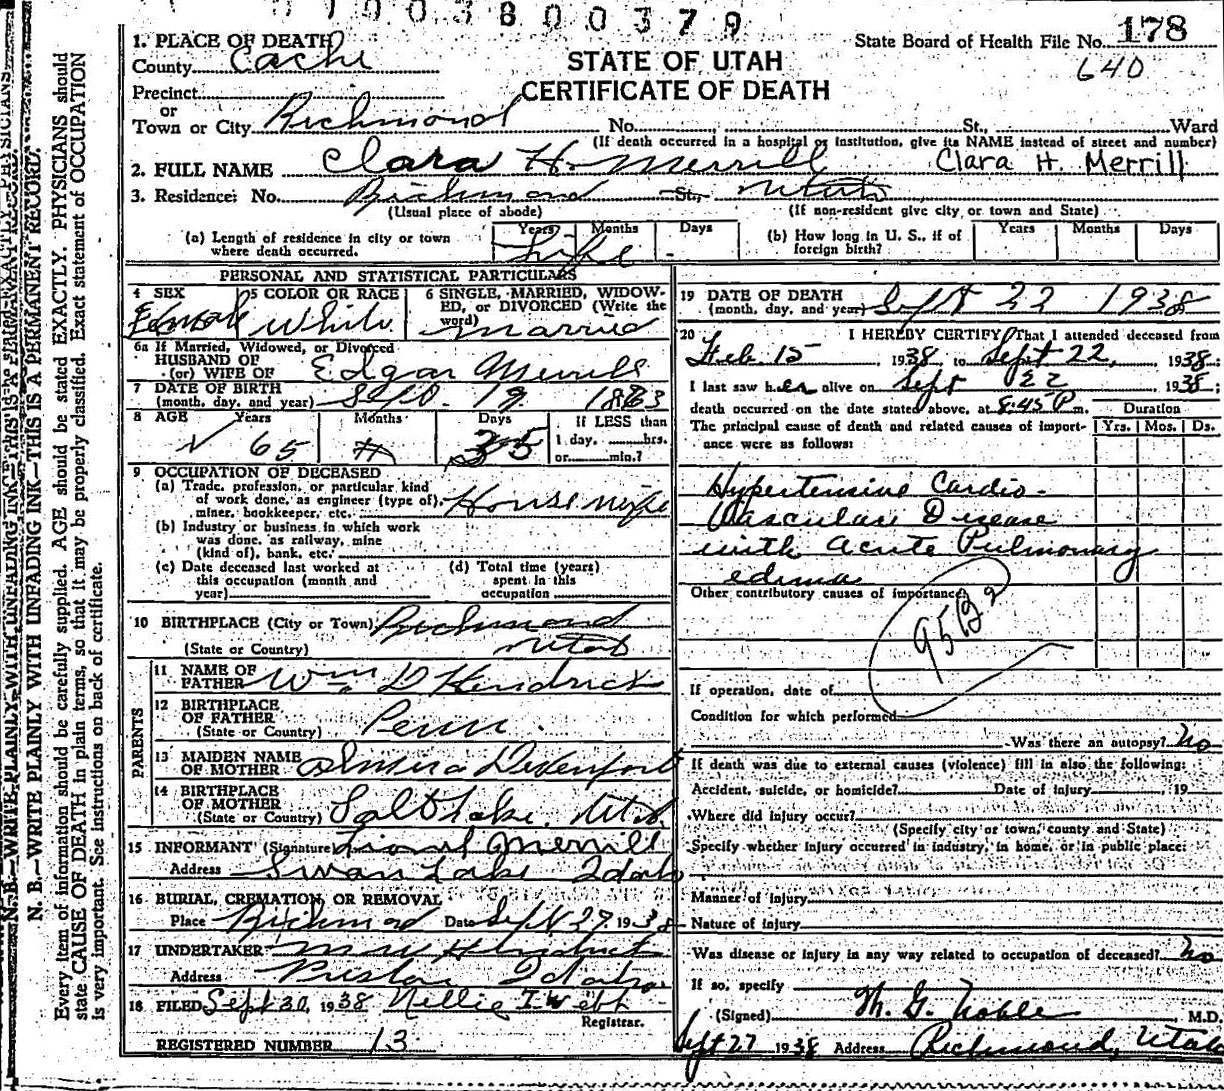 0 1 0 0 3 8 0 0 3 7 9
1. PLACE OF DEATH
County Cache
Precinct
or
Town or City Richmond No. St., Ward
STATE OF UTAH
CERTIFICATE OF DEATH
State Board of Health File No. 178
640
(If death occurred in a hospital or institution, give its NAME instead of street and number)
2. FULL NAME Clara H. Merrill Clara H. Merrill
3. Residence: No. Richmond St., Utah
(Usual place of abode) (If non-resident give city, or town and State)
(a) Length of residence in city or town where death occurred. Years Months Days
Life
(b) How long in U. S., if of foreign birth? Years Months Days
PERSONAL AND STATISTICAL PARTICULARS
4 SEX Female
5 COLOR OR RACE White
6 SINGLE, MARRIED, WIDOWED, or DIVORCED (Write the word) Married
6a If Married, Widowed, or Divorced
HUSBAND OF
(or) WIFE OF Edgar Merrill
7 DATE OF BIRTH
(month, day, and year) Sept. 19 1873
8 AGE Years Months Days If LESS than
65 3 1 day, hrs.
or min.?
9 OCCUPATION OF DECEASED
(a) Trade, profession, or particular kind
of work done, as engineer (type of),
miner, bookkeeper, etc. Housewife
(b) Industry or business in which work
was done, as railway, mine
(kind of), bank, etc.
(c) Date deceased last worked at
this occupation (month and
year)
(d) Total time (years)
spent in this
occupation
10 BIRTHPLACE (City or Town) Richmond
(State or Country) Utah
PARENTS
11 NAME OF
FATHER Wm D Hendrick
12 BIRTHPLACE
OF FATHER
(State or Country) Penn.
13 MAIDEN NAME
OF MOTHER Almira Devenport
14 BIRTHPLACE
OF MOTHER
(State or Country) Salt Lake, Utah
15 INFORMANT (Signature) Lionel Merrill
Address Swan Lake Idaho
16 BURIAL, CREMATION, OR REMOVAL
Place Richmond Date Sept 27, 1938
17 UNDERTAKER
Address Preston Idaho
18 FILED Sept 30, 1938 Nellie T. Webb
Registrar.
REGISTERED NUMBER 13
19 DATE OF DEATH
(month, day, and year) Sept 22 1938
20 I HEREBY CERTIFY, That I attended deceased from
Feb. 15 1938, to Sept 22, 1938
I last saw her alive on Sept 22 1938;
death occurred on the date stated above, at 8:45 P m.
Duration
The principal cause of death and related causes of importance were as follows: Yrs. Mos. Ds.
Hypertensive Cardio-
Vascular Disease
with Acute Pulmonary
edema
Other contributory causes of importance:
If operation, date of
Condition for which performed
Was there an autopsy? No
If death was due to external causes (violence) fill in also the following:
Accident, suicide, or homicide? Date of injury, 19
Where did injury occur?
(Specify city or town, county and State)
Specify whether injury occurred in industry, in home, or in public place:
Manner of injury
Nature of injury
Was disease or injury in any way related to occupation of deceased? No
If so, specify
(Signed) M. G. Noble M.D.
Sept 27 1938 Address Richmond, Utah
N. B.—WRITE PLAINLY WITH UNFADING INK—THIS IS A PERMANENT RECORD.
Every item of information should be carefully supplied. AGE should be stated EXACTLY. PHYSICIANS should
state CAUSE OF DEATH in plain terms, so that it may be properly classified. Exact statement of OCCUPATION
is very important. See instructions on back of certificate.